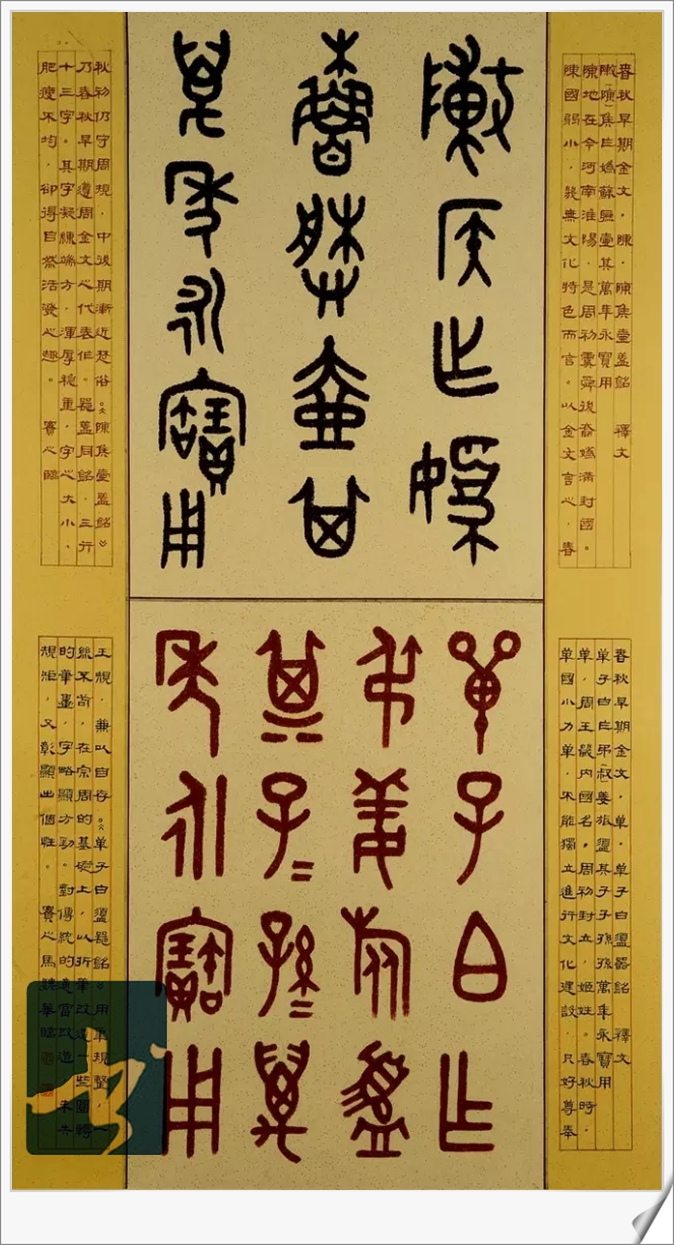 春秋早期金文。陳。陳矦壺蓋銘 釋文
敶(陳)矦乍媯蘇媵壺其萬年永寶用
陳地在今河南淮陽。是周初虞舜後裔媯滿封國。
陳國弱小，幾無文化特色而言。以金文言之，春
敶矦乍媯
蘇媵壺其
萬年永寶用
秋初仍守周規，中後期漸近楚俗。《陳矦壺蓋銘》
乃春秋早期遵周金文之代表作。器蓋同銘，三行
十三字。其字凝練端方，渾厚穩重，字之大小、
肥瘦不均，卻得自然活潑之趣。 賽之臨
春秋早期金文。单。单子白盨器銘 釋文
单子白乍弔(叔)姜旅盨其子子孫孫萬年永寶用
单，周王畿内國名。周初封立，姬姓。春秋時，
单國小力单，不能獨立進行文化建設，只好尊奉
單子白乍
弔姜旅盨
其子=孫=萬
年永寶用
王規，兼以自存。《单子白盨器銘》用筆規整，一
絲不苟，在宗周的基礎上，以折筆改造一些圓轉
的筆畫，字略顯方勁。對傳統的適當改造，未失
規矩，又彰顯出個性。 賽之馬
书